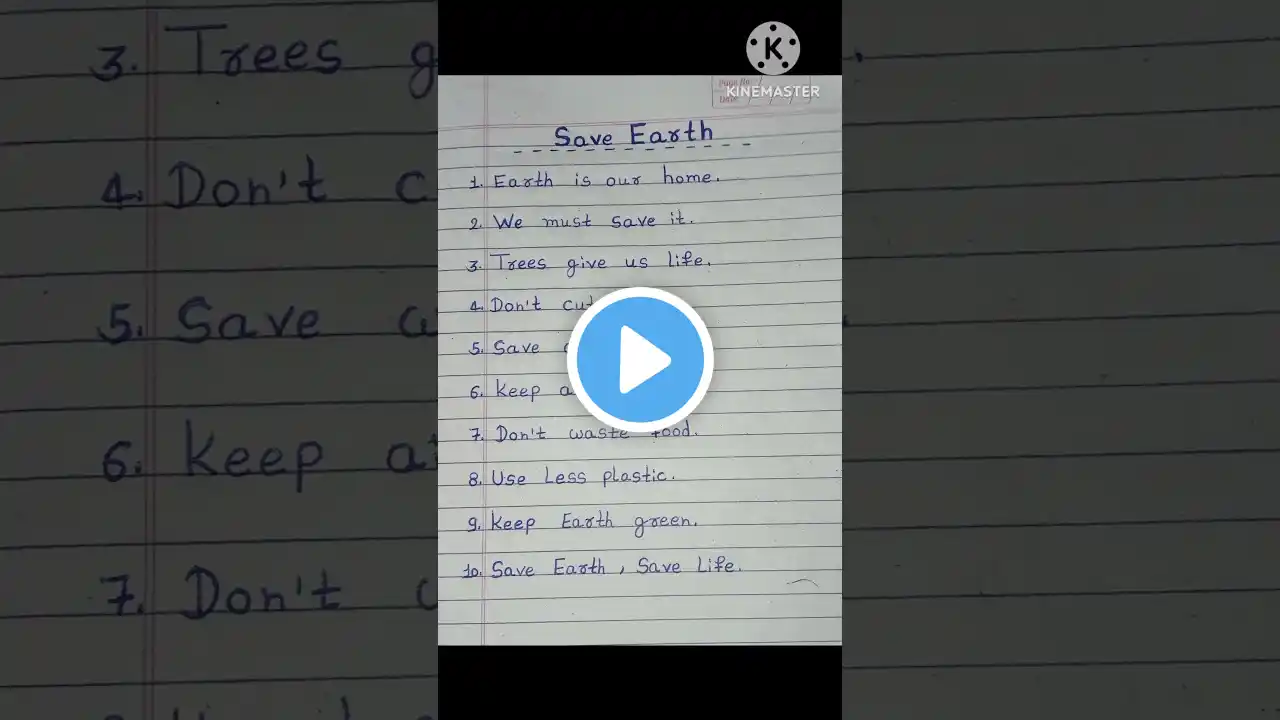 KINEMASTER
Page No.
Date:
Save Earth
1. Earth is our home.
2. We must save it.
3. Trees give us life.
4. Don't cut
5. Save
6. Keep
7. Don't waste food.
8. Use Less plastic.
9. Keep Earth green.
10. Save Earth, Save Life.
3. Trees
4. Don't
5. Save
6. Keep
7. Don't